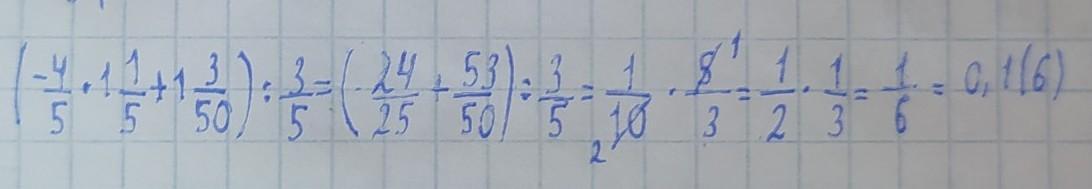 (-4/5 · 1 1/5 + 1 3/50) : 3/5 = (-24/25 + 53/50) : 3/5 = 1/10 2 · 5/3 1 = 1/2 · 1/3 = 1/6 = 0,1(6)